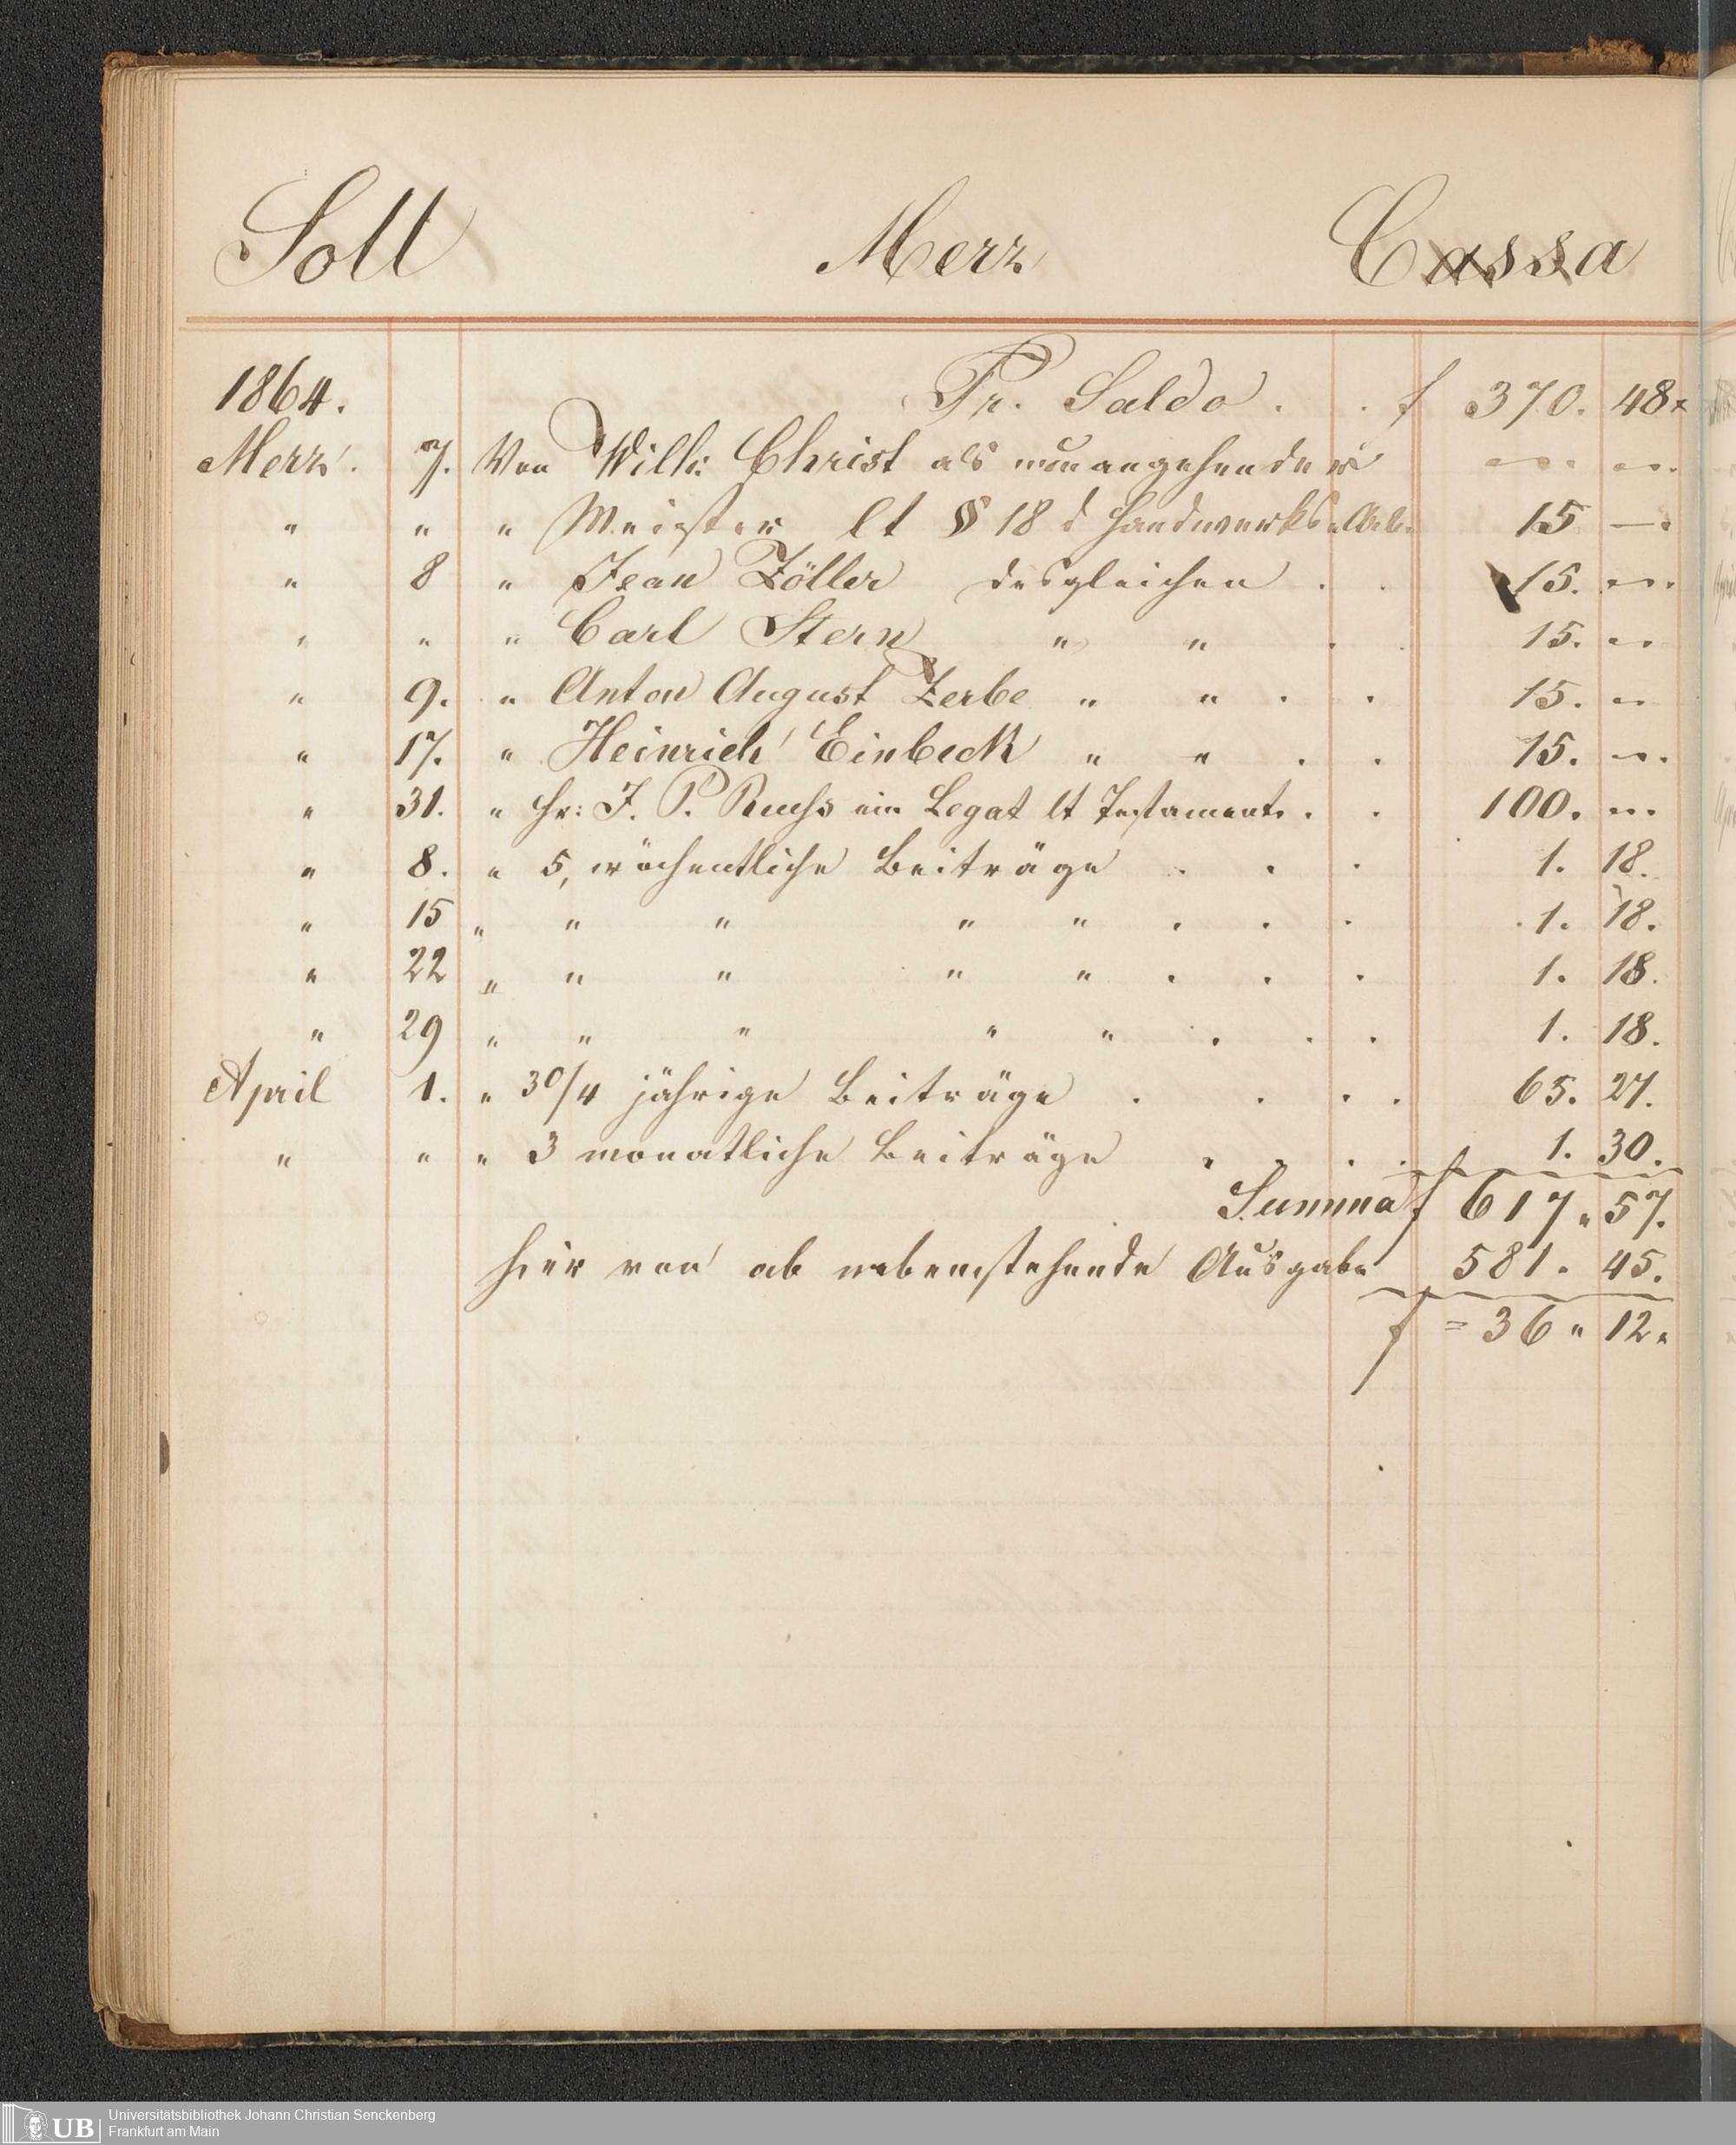 Soll Merz Cassa
1864. Pr. Saldo . . f 370. 48x
Merz. 7. Von Wilh: Christ als neuangehender „. „.
„ „ „ Meister lt § 18 d Handwerks 15 —.
„ 8 „ Jean Zöller desgleichen . . 15. „.
„ „ „ Carl Stern „ „ . . 15. „.
„ 9. „ Anton August Zerbe „ „ . . 15. „
„ 17. „ Heinrich Einbeck „ „ . . 15. „.
„ 31. „ Hr: J. P. ein Legat lt Testament. . . 100. „.
„ 8. „ 5, wöchentliche Beiträge . . . 1. 18.
„ 15 „ „ „ „ „ . . . 1. 18.
„ 22 „ „ „ „ „ . . . 1. 18.
„ 29 „ „ „ „ „ . . . 1. 18.
April 1. „ 30/4 jährige Beiträge . . . . 65. 27.
„ „ „ 3 monatliche Beiträge . . . . 1. 30.
Summa f 617 „ 57.
hier von ab nebenstehende Ausgabe 581. 45.
f = 36 „ 12.
UB Universitätsbibliothek Johann Christian Senckenberg
Frankfurt am Main